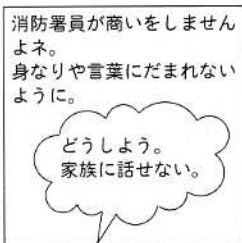 消防署員が商いをしません
よネ。
身なりや言葉にだまれない
ように。
どうしよう。
家族に話せない。